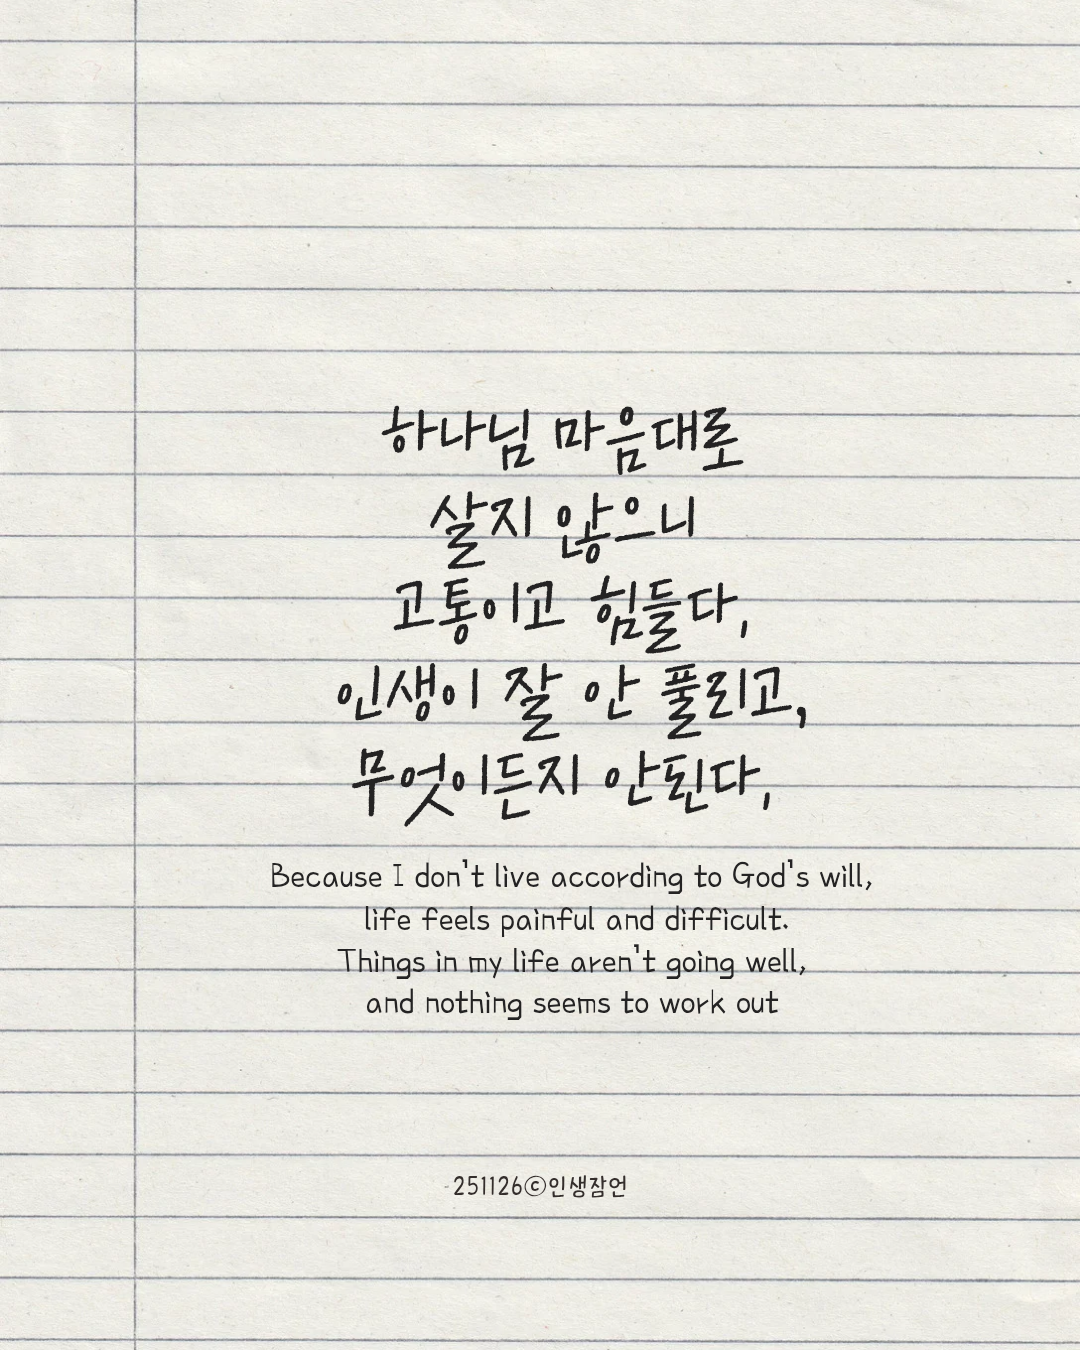 하나님 마음대로
살지 않으니
고통이고 힘들다,
인생이 잘 안 풀리고,
무엇이든지 안된다,
Because I don't live according to God's will,
life feels painful and difficult.
Things in my life aren't going well,
and nothing seems to work out
-251126ⓒ인생잠언